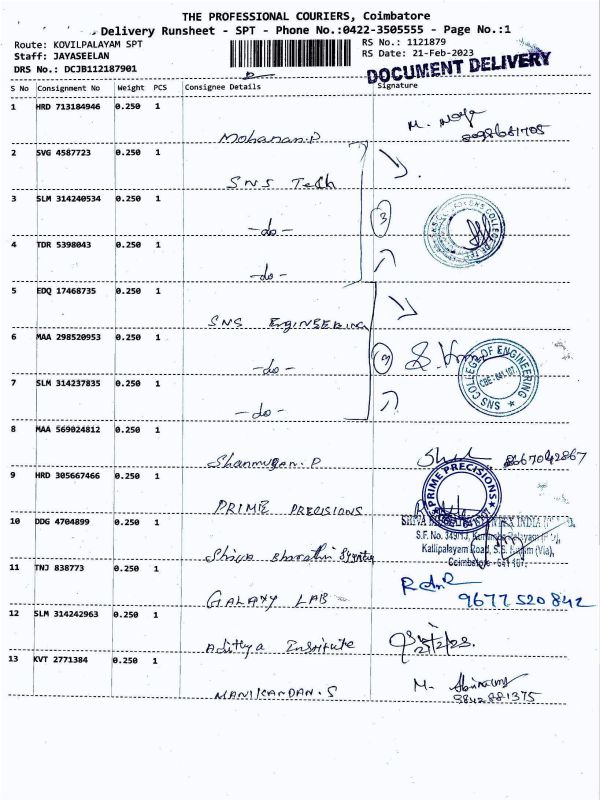 THE PROFESSIONAL COURIERS, Coimbatore
Delivery Runsheet - SPT - Phone No.:0422-3505555 - Page No.:1
Route: KOVILPALAYAM SPT
Staff: JAYASEELAN
DRS No.: DCJB112187901
RS No.: 1121879
RS Date: 21-Feb-2023
DOCUMENT DELIVERY
S No Consignment No Weight PCS Consignee Details Signature
1 HRD 713184946 0.250 1
Mohanan.P M.
2 SVG 4587723 0.250 1
SNS Tech
3 SLM 314240534 0.250 1
-do- 3
4 TDR 5398043 0.250 1
-do-
5 EDQ 17468735 0.250 1
SNS Engineering
6 MAA 298520953 0.250 1
-do-
SNS COLLEGE OF ENGINEERING
CBE - 641 107.
7 SLM 314237835 0.250 1
-do-
8 MAA 569024812 0.250 1
Shanmugan.P 8667042867
9 HRD 305667466 0.250 1
PRIME PRECISIONS
PRIME PRECISIONS
10 DDG 4704899 0.250 1
Shiva Bharathi
S.F. No. 349/1J,
Kallipalayam Road, S.S. Kulam (Via),
Coimbatore - 641 107.
11 TNJ 838773 0.250 1
GALAXY LAB 9677520842
12 SLM 314242963 0.250 1
Adithya Institute
13 KVT 2771384 0.250 1
MANIKANDAN.S M.
9842881375